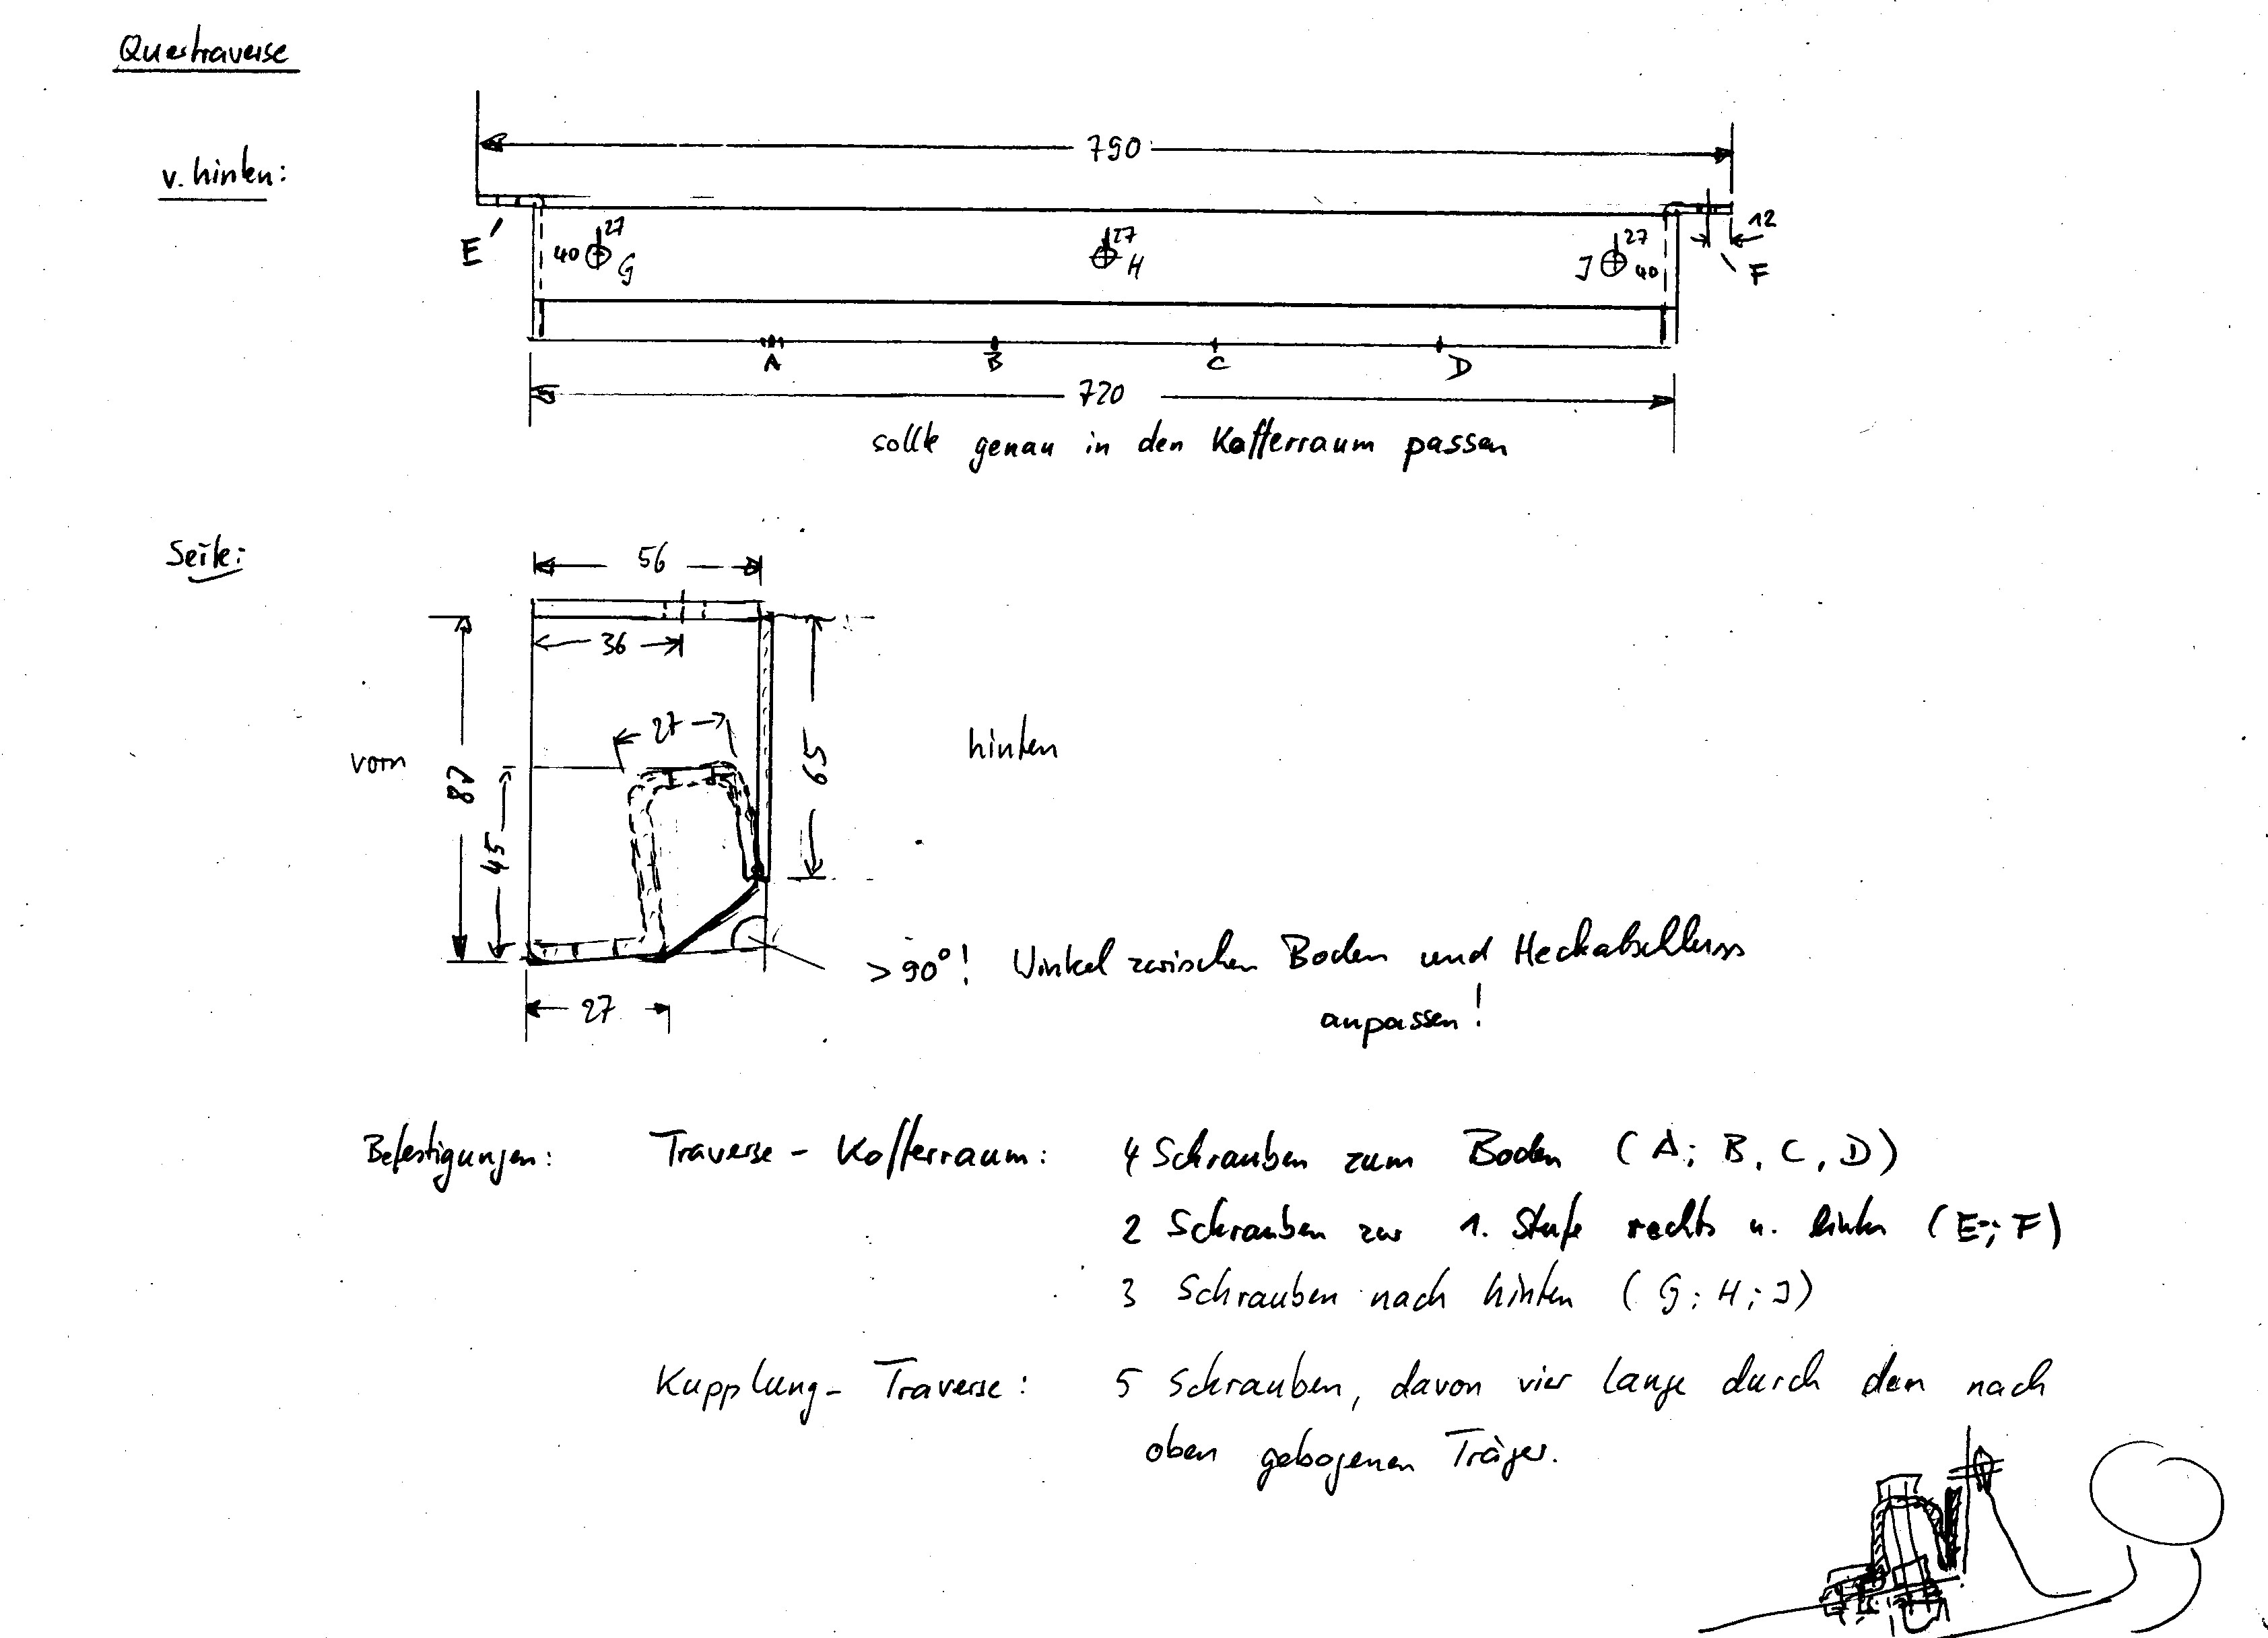 Quertraverse
790
v. hinten:
12
E
40
27
G
27
H
J
27
40
F
A
B
C
D
720
sollte genau in den Kofferraum passen
Seite:
56
36
27
vorn
hinten
65
45
>90°! Winkel zwischen Boden und Heckabschluss
anpassen!
27
Befestigungen: Traverse - Kofferraum: 4 Schrauben zum Boden (A; B, C, D)
2 Schrauben zur 1. Stufe rechts u. links (E; F)
3 Schrauben nach hinten (G; H; J)
Kupplung - Traverse: 5 Schrauben, davon vier lange durch den nach
oben gebogenen Träger.